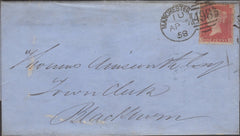 MANCHESTER
AP
58
Thomas Ainsworth Esqr
Town Clerk
Blackburn